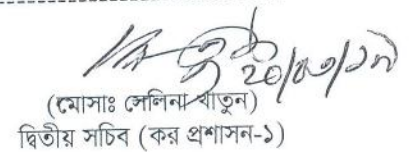 ২০/০৩/১৭
(মোসাঃ সেলিনা খাতুন)
দ্বিতীয় সচিব (কর প্রশাসন-১)